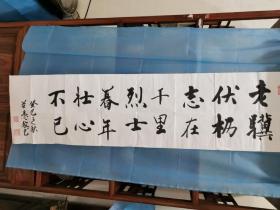 老骥
伏枥
志在
千里
烈士
暮年
壮心
不已
癸巳之秋